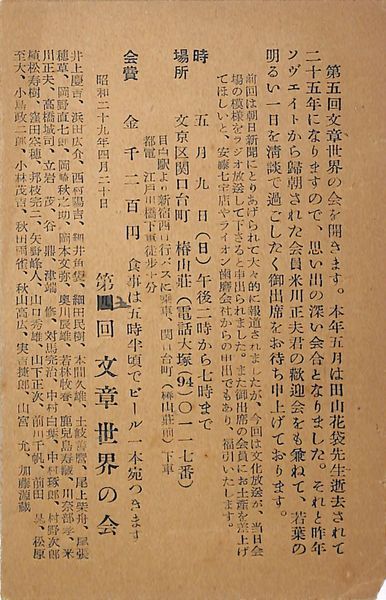 第五回文章世界の会を開きます。本年五月は田山花袋先生逝去されて
二十五年になりますので、思い出の深い会合となりました。それと昨年
ソヴェイトから帰朝された会員米川正夫君の歓迎会をも兼ねて、若葉の
明るい一日を清談で過ごしたく御出席をお待ち申上げております。
前回は朝日新聞にとりあげられて大々的に報道されましたが、今回は文化放送が、当日会
場の模様をラジオ放送して下さると申出られました。また御出席の会員にお土産を差上げ
てほしいと、安藤七宝店やライオン歯磨会社からの申出でもあり、福引いたします。
時　五月九日（日）午後二時から七時まで
場所　文京区関口台町　椿山荘（電話大塚(94)〇一一七番）
目白駅より新宿西口行バスに乗車、関口台町（椿山荘前）下車
都電　江戸川橋下車徒歩十分
会費　金千二百円　食事は五時半頃でビール一本宛つきます
昭和二十九年四月二十日
第四回文章世界の会
井上慶吉、浜田広介、西村陽吉、細井魚袋、細田民樹、本間久雄、土岐善麿、尾上柴舟、尾張
穂草、岡野直七郎、岡崎秋之助、岡本文弥、奥川辰雄、若林牧春、鹿児島寿蔵、川奈部孝、米
川正夫、高橋城司、立岩茂、谷鼎、津端修、対馬完治、中村白葉、中村琢郎、村野次郎
植松寿樹、窪田空穂、邦枝完二、矢野峰人、山口秀雄、山下正次、前川千帆、前田晁、松原
至大、小島政二郎、小林茂吉、秋田雨雀、秋山高広、実吉捷郎、山宮允、加藤源蔵